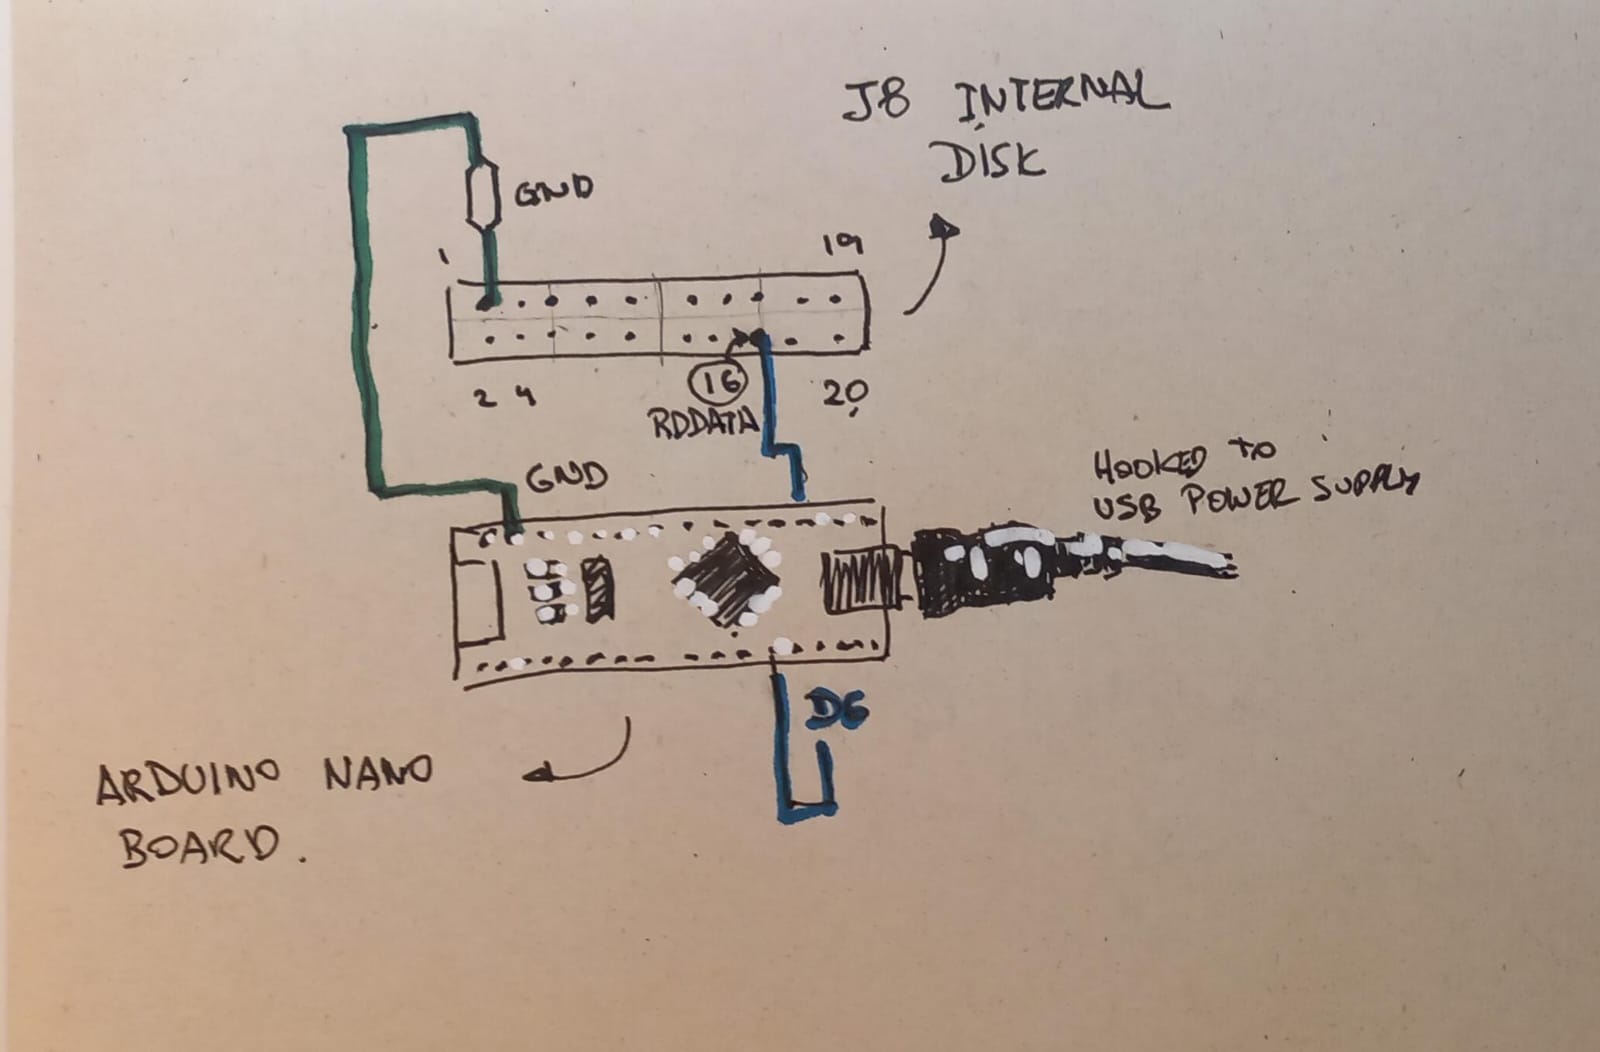 J8 INTERNAL
DISK
GND
1
19
2 4
16
20
RDDATA
GND
HOOKED TO
USB POWER SUPPLY
D6
ARDUINO NANO
BOARD.